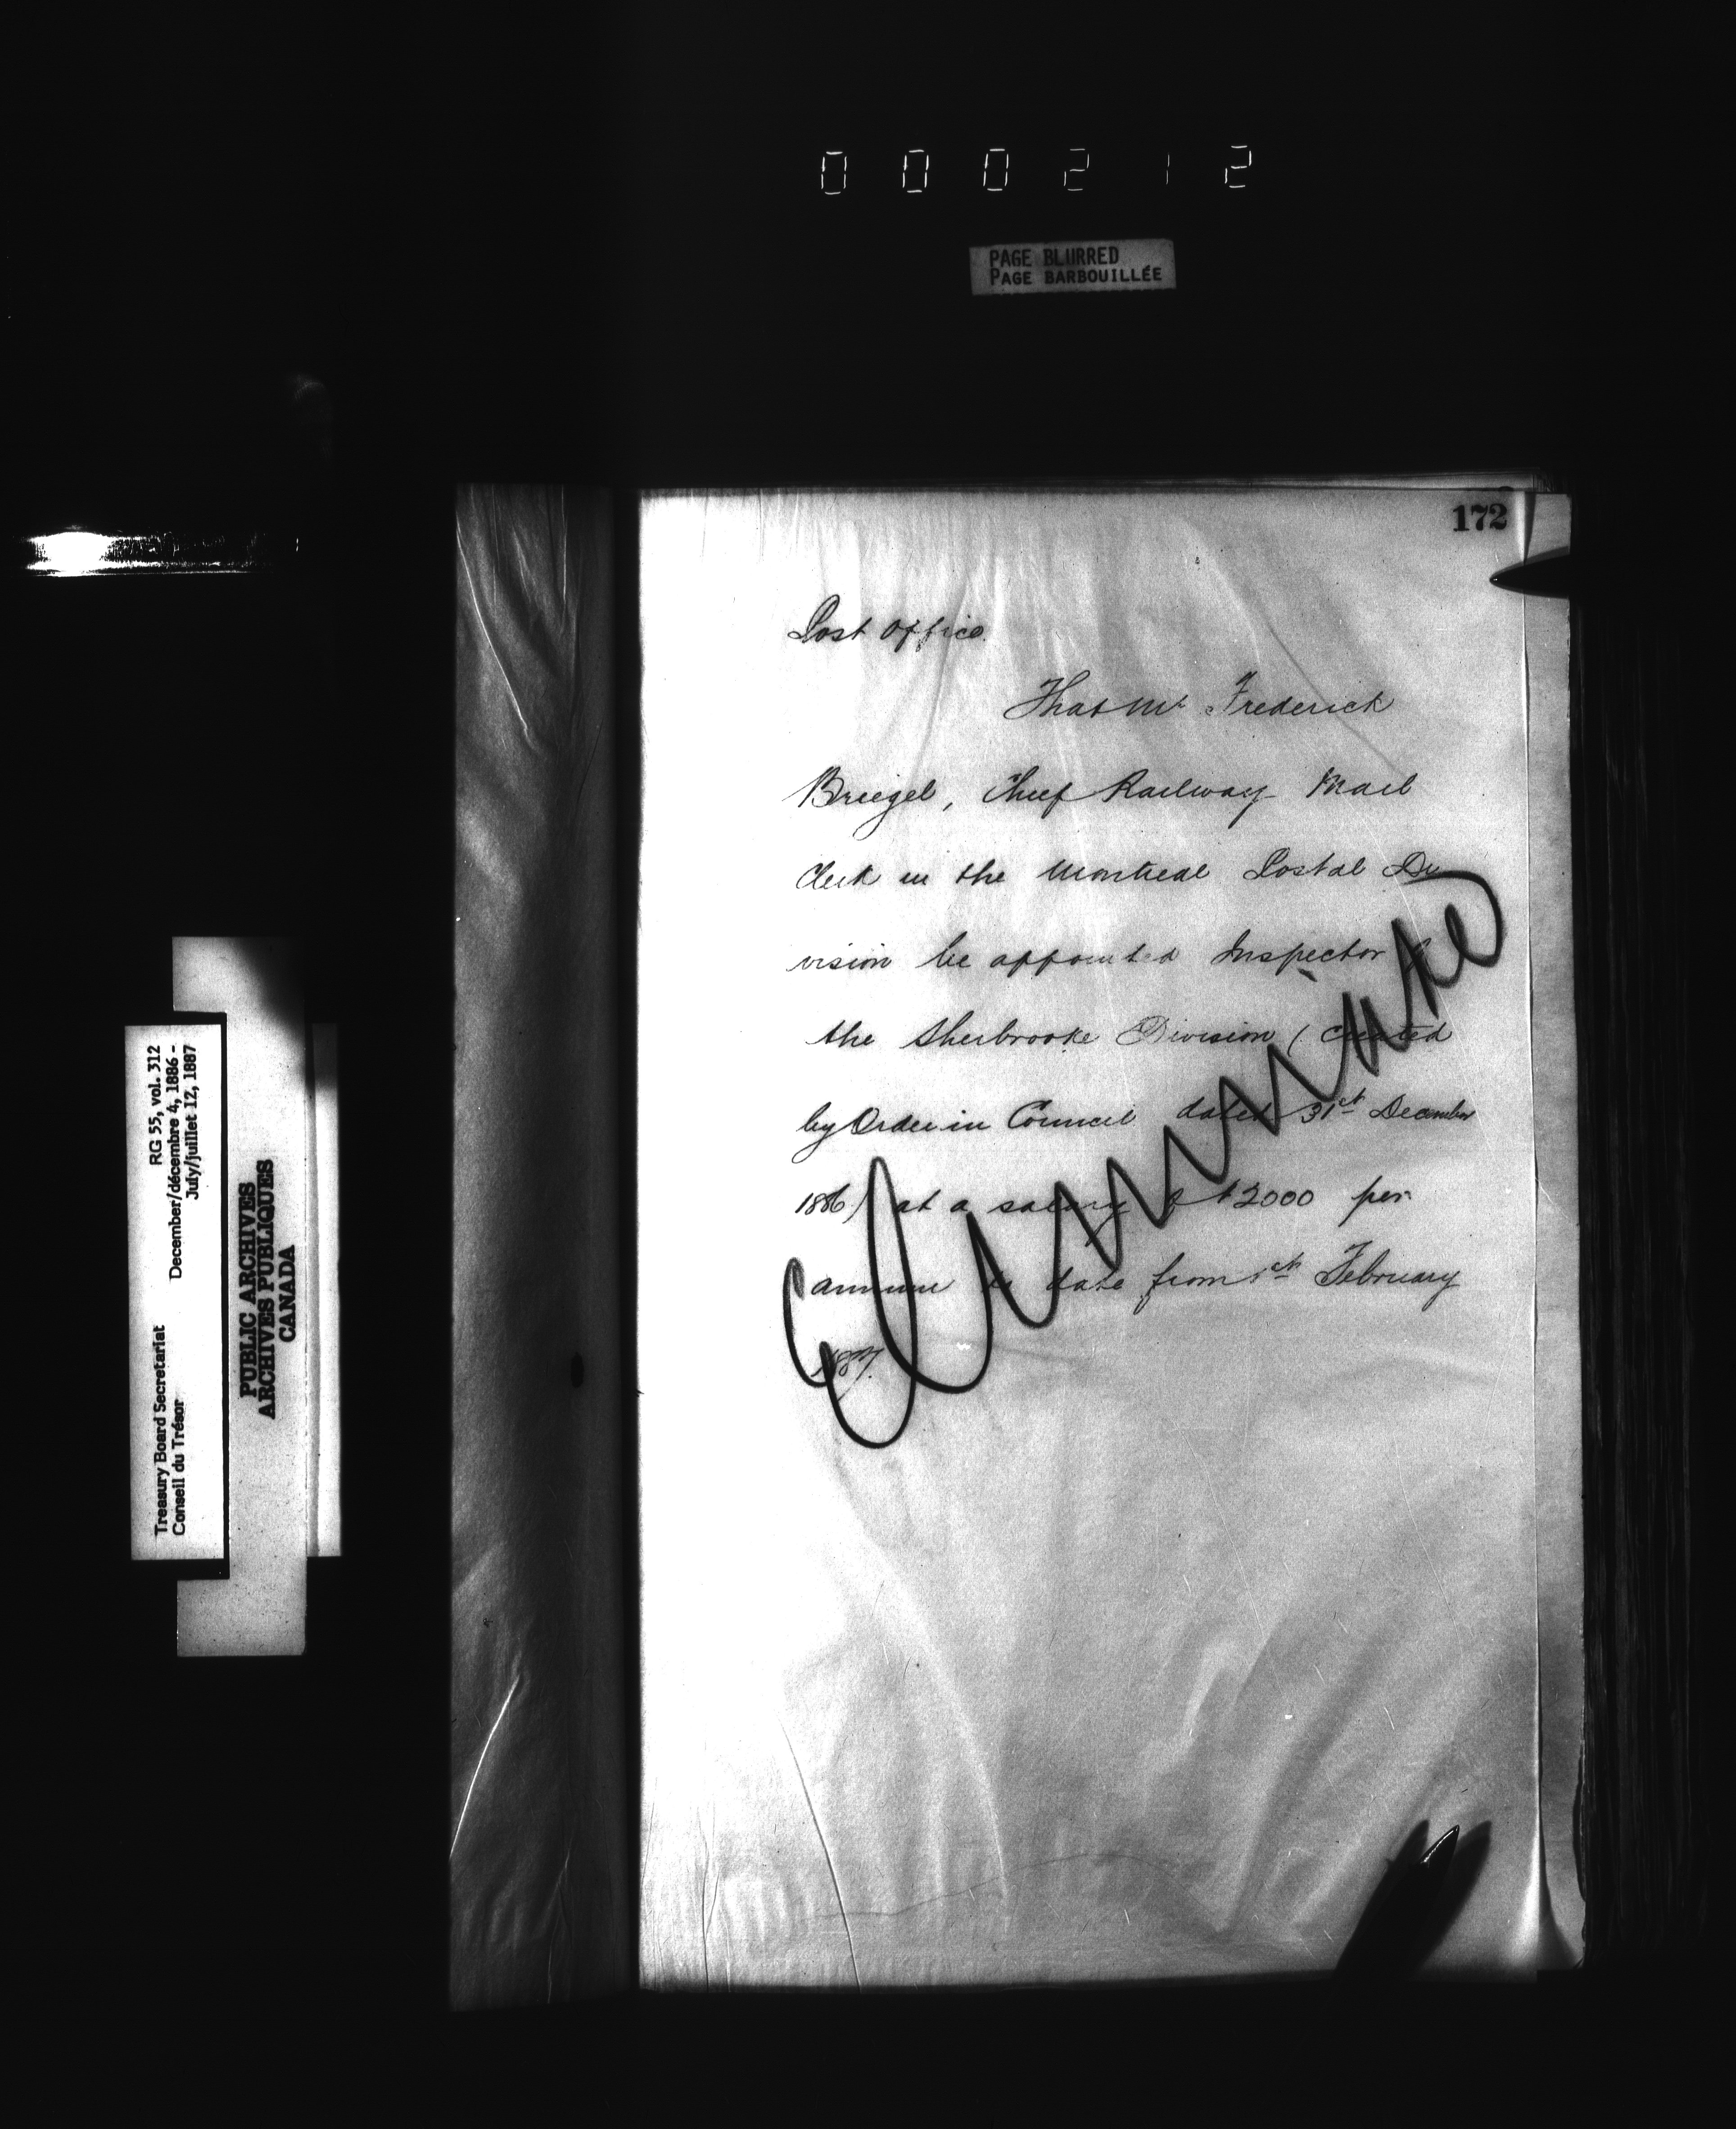 000212
PAGE BLURRED
PAGE BARBOUILLÉE
172
Post Office.
That Mr Frederick
Breigel, Chief Railway Mail
Clerk in the Montreal Postal Di
vision be appointed Inspector of
the Sherbrooke Division ( created
by Order in Council dated 31st December
1886) at a salary of $2000 per
annum to date from 1st February
1887.
RG 55, vol. 312
December/décembre 4, 1886 -
July/juillet 12, 1887
Treasury Board Secretariat
Conseil du Trésor
PUBLIC ARCHIVES
ARCHIVES PUBLIQUES
CANADA